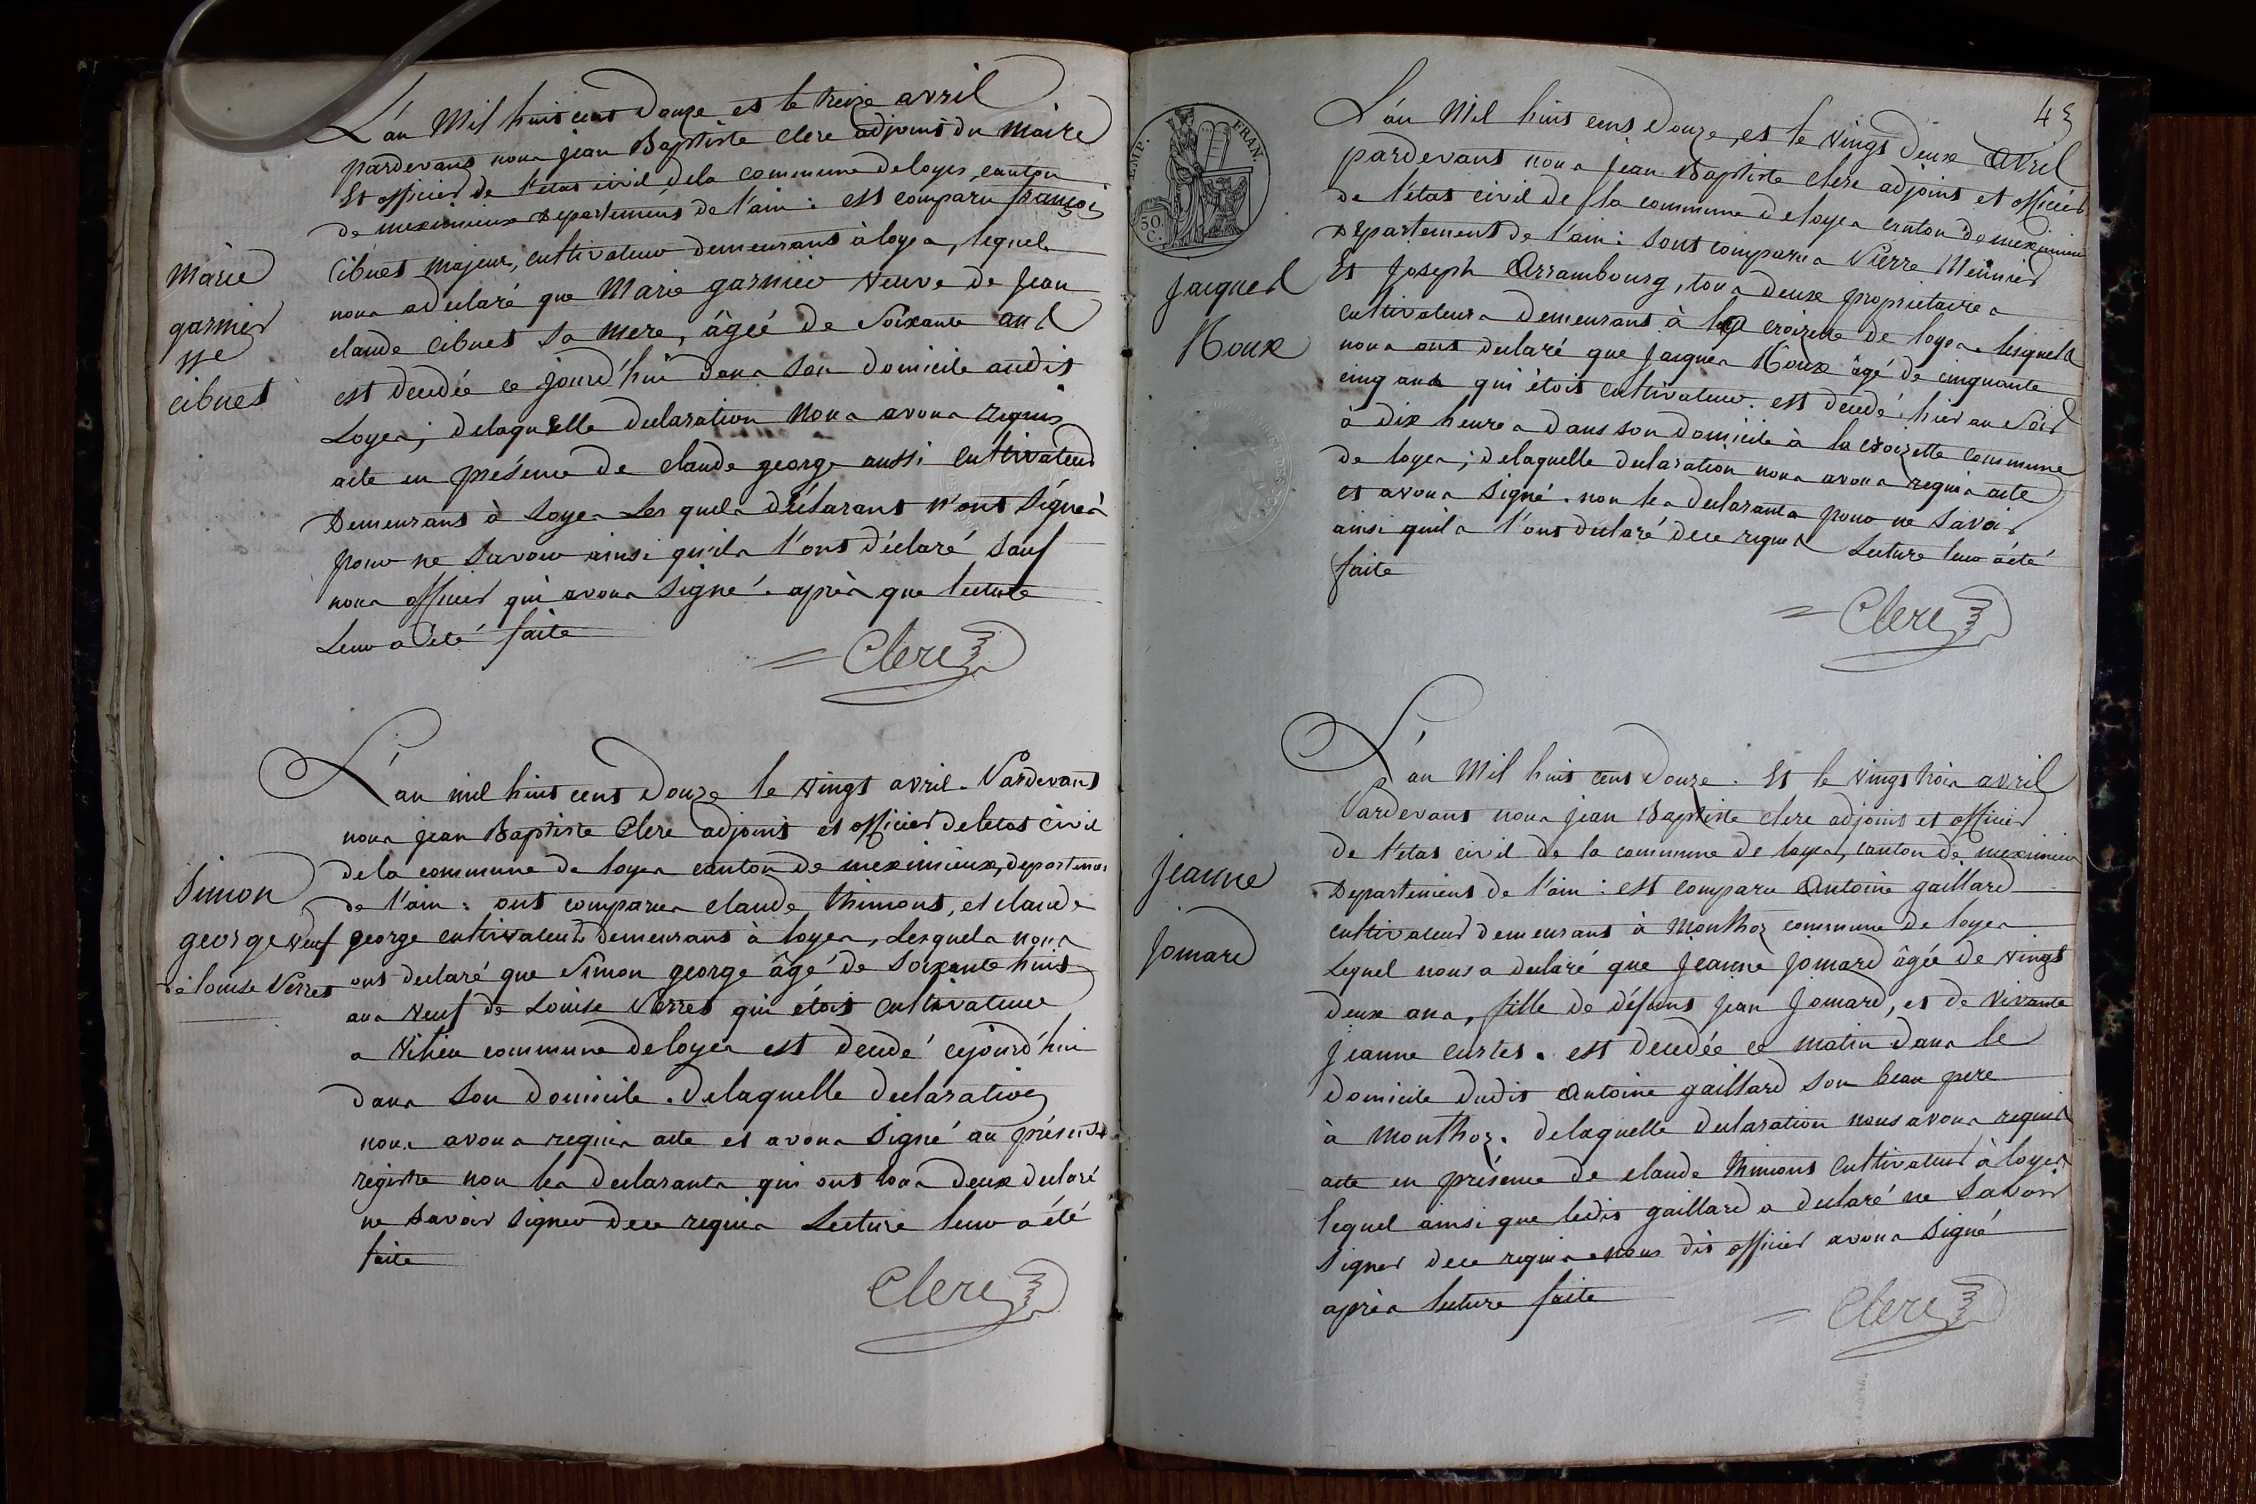 L'an Mil huit cent Douze et le treize avril
pardevant nous jean Baptiste Clerc adjoint du Maire
Et officier de l'etat civil dela commune deloyes, canton
de meximieux Departement de l'ain : est comparu françois
Cibuet majeur, cultivateur demeurant à loyes, lequel
nous a declaré que Marie garnier veuve de Jean
claude Cibuet sa mere, âgée de Soixante ans
est decedée ce jourd'hui dans son domicile audit
Loyes; delaquelle declaration nous avons requis
acte en présence de claude george aussi cultivateur
Demeurant à Loyes Les quels déclarant n'ont Signés
pour ne Savoir ainsi qu'ils l'ont déclaré Sauf
nous officier qui avons Signé. après que lecture
Leur a été faite
Clerc
Marie
garnier
vve
cibuet
L'an mil huit cent Douze le vingt avril. Pardevant
nous jean Baptiste Clerc adjoint et officier deletat civil
dela commune de loyes canton de meximieux, departement
de l'ain : ont comparus claude thimont, et claude
george cultivateurs demeurant à loyes, Lesquels nous
ont declaré que Simon george âgé de Soixante huit
ans veuf de Louise Verret qui étoit cultivateur
a Vilieu commune deloyes est decedé cejourd'hui
dans son domicile. delaquelle declaration
nous avons requis acte et avons signé au présent
registre non les declarants qui ont tous deux declaré
ne savoir signer de ce requis Lecture leur a été
faite
Clerc
Simon
george veuf
de louise Verret
43
EMP. FRAN.
50 C.
L'an Mil huit cent Douze, et le vingt deux avril
pardevant nous jean Baptiste clerc adjoint et officier
de l'état civil de la commune deloyes canton de meximieux
Departement de l'ain : sont comparus Pierre Meunier
Et Joseph Arrambourg, tous deux proprietaires
cultivateurs demeurant à la croizette de loyes. lesquels
nous ont declaré que Jacques Roux âgé de cinquante
cinq ans qui étoit cultivateur. est decedé hier au Soir
à dix heures dans son domicile à la croizette commune
de loyes; delaquelle declaration nous avons requis acte
et avons signé. non les declarants pour ne Savoir
ainsi quils l'ont declaré de ce requis Lecture leur a été
faite
Clerc
Jacques
Roux
L'an Mil huit cent Douze. Et le vingt trois avril
Pardevant nous jean Baptiste clerc adjoint et officier
de l'etat civil de la commune de loyes, canton de meximieux
Departement de l'ain : est comparu Antoine gaillard
cultivateur demeurant à Monthoz commune de loyes
Lequel nous a declaré que Jeanne Jomard âgée de vingt
deux ans, fille de défunt jean Jomard, et de vivante
Jeanne curtet. est decedée ce matin dans le
domicile dudit Antoine gaillard son beau pere
à Monthoz. delaquelle declaration nous avons requis
acte en présence de claude thimont cultivateur à loyes
lequel ainsi que ledit gaillard a declaré ne Savoir
Signer de ce requis. nous dit officier avons signé
après lecture faite
Clerc
Jeanne
Jomard